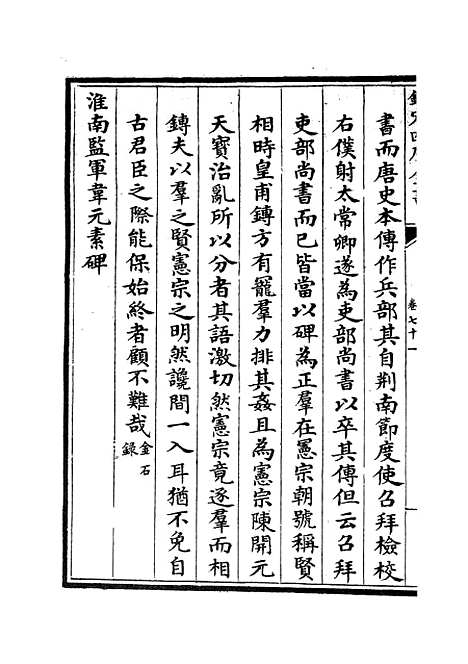 欽定四庫全書
卷七十一
書而唐史本傳作兵部其自荆南節度使召拜檢校
右僕射太常卿遂為吏部尚書以卒其傳但云召拜
吏部尚書而已皆當以碑為正羣在憲宗朝號稱賢
相時皇甫鎛方有寵羣力排其姦且為憲宗陳開元
天寶治亂所以分者其語激切然憲宗竟逐羣而相
鎛夫以羣之賢憲宗之明然讒間一入耳猶不免自
古君臣之際能保始終者顧不難哉金石錄
淮南監軍韋元素碑